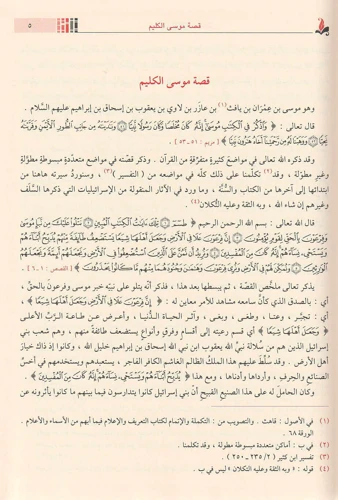 قصة موسى الكليم
٥
قصة موسى الكليم
وهو موسى بن عِمْرَان بن يافث(١) بن عازَر بن لاوي بن يعقوب بن إسحاق بن إبراهيم عليهم السلام .
قال تعالى : ﴿ وَاذْكُرْ فِي الْكِتَابِ مُوسَى إِنَّهُ كَانَ مُخْلَصًا وَكَانَ رَسُولًا نَبِيًّا ۝ وَنَادَيْنَاهُ مِنْ جَانِبِ الطُّورِ الْأَيْمَنِ وَقَرَّبْنَاهُ
نَجِيًّا ۝ وَوَهَبْنَا لَهُ مِنْ رَحْمَتِنَا أَخَاهُ هَارُونَ نَبِيًّا ﴾ [ مريم : ٥١ ـ ٥٣ ] .
وقد ذكره الله تعالى في مواضعَ كثيرةٍ متفرّقةٍ من القرآن . وذكر قصّته في مواضع متعدّدةٍ مبسوطةٍ مطوّلةٍ
وغيرِ مطوّلة ، وقد(٢) تكلّمنا على ذلك كلّه في مواضعه من ( التفسير )(٣) . وسنوردُ سيرته هاهنا من
ابتدائها إلى آخرها من الكتاب والسُّنة ، وما ورد في الآثار المنقولة من الإسرائيليات التي ذكرها السلف
وغيرهم إن شاء الله ، وبه الثقة وعليه التّكلان(٤) .
قال الله تعالى : بسم الله الرحمن الرحيم ﴿ طسم ۝ تِلْكَ آيَاتُ الْكِتَابِ الْمُبِينِ ۝ نَتْلُو عَلَيْكَ مِنْ نَبَإِ مُوسَى
وَفِرْعَوْنَ بِالْحَقِّ لِقَوْمٍ يُؤْمِنُونَ ۝ إِنَّ فِرْعَوْنَ عَلَا فِي الْأَرْضِ وَجَعَلَ أَهْلَهَا شِيَعًا يَسْتَضْعِفُ طَائِفَةً مِنْهُمْ يُذَبِّحُ أَبْنَاءَهُمْ
وَيَسْتَحْيِي نِسَاءَهُمْ إِنَّهُ كَانَ مِنَ الْمُفْسِدِينَ ۝ وَنُرِيدُ أَنْ نَمُنَّ عَلَى الَّذِينَ اسْتُضْعِفُوا فِي الْأَرْضِ وَنَجْعَلَهُمْ أَئِمَّةً وَنَجْعَلَهُمُ
الْوَارِثِينَ ۝ وَنُمَكِّنَ لَهُمْ فِي الْأَرْضِ وَنُرِيَ فِرْعَوْنَ وَهَامَانَ وَجُنُودَهُمَا مِنْهُمْ مَا كَانُوا يَحْذَرُونَ ﴾ [ القصص : ١ ـ ٦ ] .
يذكر تعالى ملخّص القصّة ، ثم يبسطها بعد هذا ، فذكر أنه يتلو على نبيّه خبر موسى وفرعون بالحقّ ،
أي : بالصدق الذي كأنّ سامعه مشاهد للأمر معاين له : ﴿ إِنَّ فِرْعَوْنَ عَلَا فِي الْأَرْضِ وَجَعَلَ أَهْلَهَا شِيَعًا ﴾ ،
أي : تجبّر ، وعتا ، وطغى ، وبغى ، وآثر الحياة الدُّنيا ، وأعرض عن طاعة الرَّبّ الأعلى
﴿ وَجَعَلَ أَهْلَهَا شِيَعًا ﴾ أي قسم رعيته إلى أقسامٍ وفرقٍ وأنواعٍ يستضعف طائفةً منهم ، وهم شعب بني
إسرائيل الذين هم من سلالة نبيّ الله يعقوب ابن نبي الله إسحاق بن إبراهيم خليل الله ، وكانوا إذ ذاك خيارَ
أهل الأرض . وقد سُلّطَ عليهم هذا الملكُ الظالم الغاشم الكافر الفاجر ، يستعبدهم ويستخدمهم في أخسّ
الصنائع والحِرَف ، وأرداها وأدناها ، ومع هذا ﴿ يُذَبِّحُ أَبْنَاءَهُمْ وَيَسْتَحْيِي نِسَاءَهُمْ إِنَّهُ كَانَ مِنَ الْمُفْسِدِينَ ﴾ .
وكان الحامل له على هذا الصنيع القبيح أنّ بني إسرائيل كانوا يتدارسون فيما بينهم ما كانوا يأثرونه عن
(١) في الأصول : قاهث . والتصويب من : التكملة والإتمام لكتاب التعريف والإعلام فيما أبهم من الأسماء والأعلام .
الورقة ٦٨ .
(٢) في ب : أماكن متعددة مبسوطة مطولة ، وقد تكلمنا .
(٣) تفسير ابن كثير ( ٢/ ٢٣٥ ـ ٢٥٠ ) .
(٤) قوله : « وبه الثقة وعليه التكلان » ليس في ب .